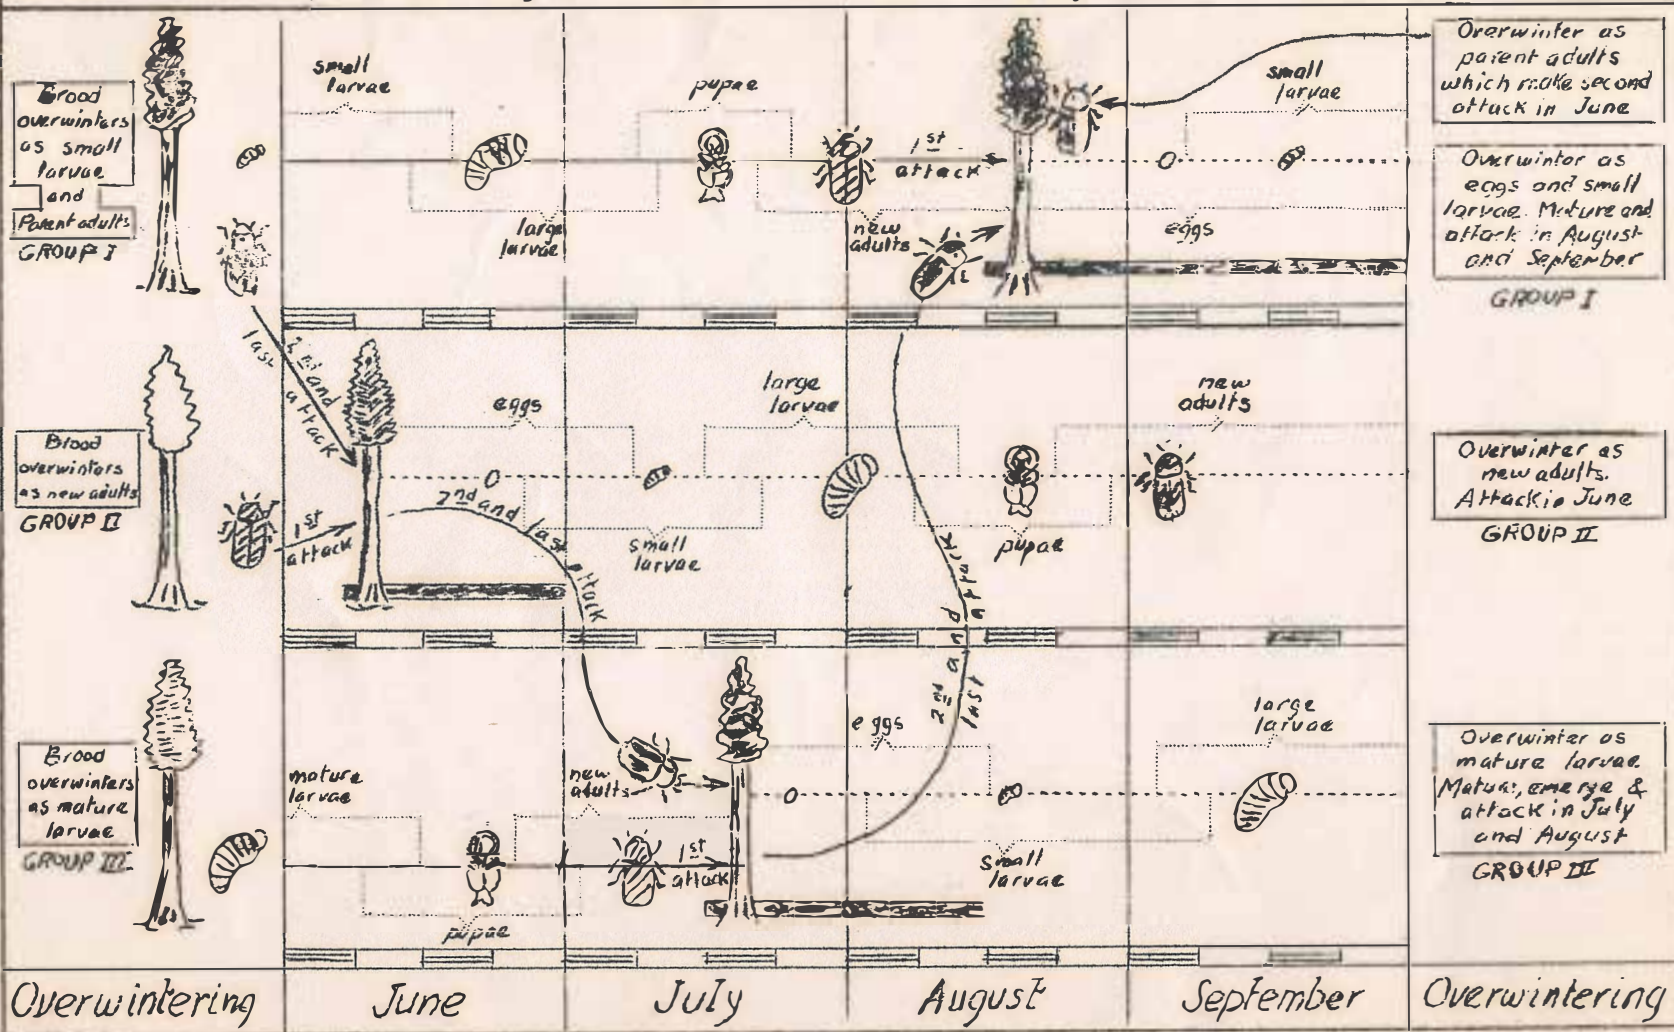 Brood
overwinters
as small
larvae
and
Parent adults
GROUP I
small
larvae
large
larvae
pupae
new
adults
1st
attack
eggs
small
larvae
Overwinter as
parent adults
which make second
attack in June
Overwinter as
eggs and small
larvae. Mature and
attack in August
and September
GROUP I
2nd and
last attack
Brood
overwinters
as new adults
GROUP II
1st
attack
eggs
2nd and last attack
small
larvae
large
larvae
pupae
new
adults
2nd and
last attack
Overwinter as
new adults.
Attack in June
GROUP II
Brood
overwinters
as mature
larvae
GROUP III
mature
larvae
pupae
new
adults
1st
attack
eggs
small
larvae
large
larvae
Overwinter as
mature larvae
Mature, emerge &
attack in July
and August
GROUP III
Overwintering
June
July
August
September
Overwintering